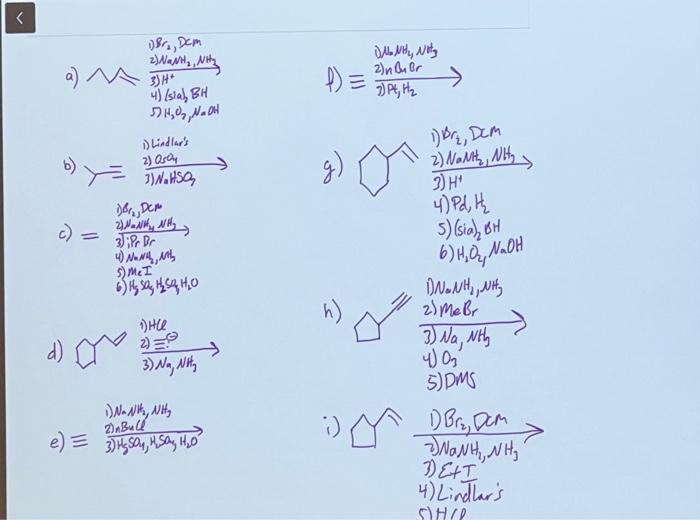 a)
1) Br₂, Dcm
2) NaNH₂, NH₃
3) H⁺
4) (sia)₂ BH
5) H₂O₂, NaOH
b)
1) Lindlar's
2) OsO₄
3) NaHSO₃
c)
1) Br₂, Dcm
2) NaNH₂, NH₃
3) iPr Br
4) NaNH₂, NH₃
5) MeI
6) H₂SO₄, H₂O
d)
1) HCl
2)
3) Na, NH₃
e)
1) NaNH₂, NH₃
2) nBuCl
3) HgSO₄, H₂SO₄, H₂O
f)
1) NaNH₂, NH₃
2) nBuBr
3) Pt, H₂
g)
1) Br₂, Dcm
2) NaNH₂, NH₃
3) H⁺
4) Pd, H₂
5) (sia)₂ BH
6) H₂O₂, NaOH
h)
1) NaNH₂, NH₃
2) MeBr
3) Na, NH₃
4) O₃
5) DMS
i)
1) Br₂, Dcm
2) NaNH₂, NH₃
3) EtI
4) Lindlar's
5) HCl